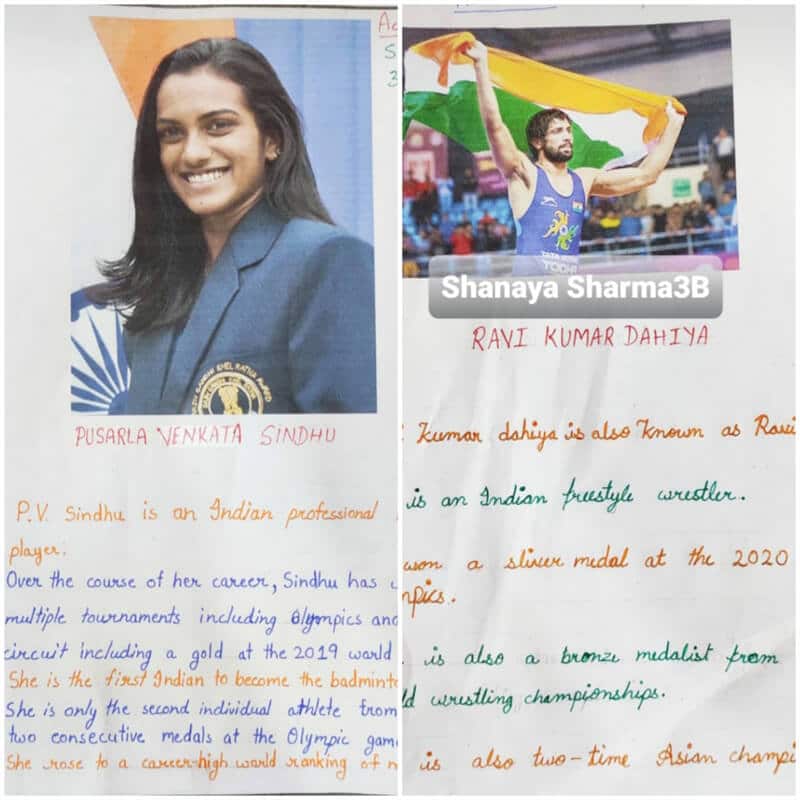 Ac
S
3
PUSARLA VENKATA SINDHU
P.V. Sindhu is an Indian professional
player.
Over the course of her career, Sindhu has
multiple tournaments including Olympics and
circuit including a gold at the 2019 world
She is the first Indian to become the badminto
She is only the second individual athlete from
two consecutive medals at the Olympic gam
She rose to a career-high world ranking of n
TATA MOTORS
Shanaya Sharma3B
RAVI KUMAR DAHIYA
Kumar dahiya is also Known as Ravi
is an Indian freestyle wrestler.
won a sliver medal at the 2020
mpics.
is also a bronze medalist from
ld wrestling championships.
is also two-time Asian champi